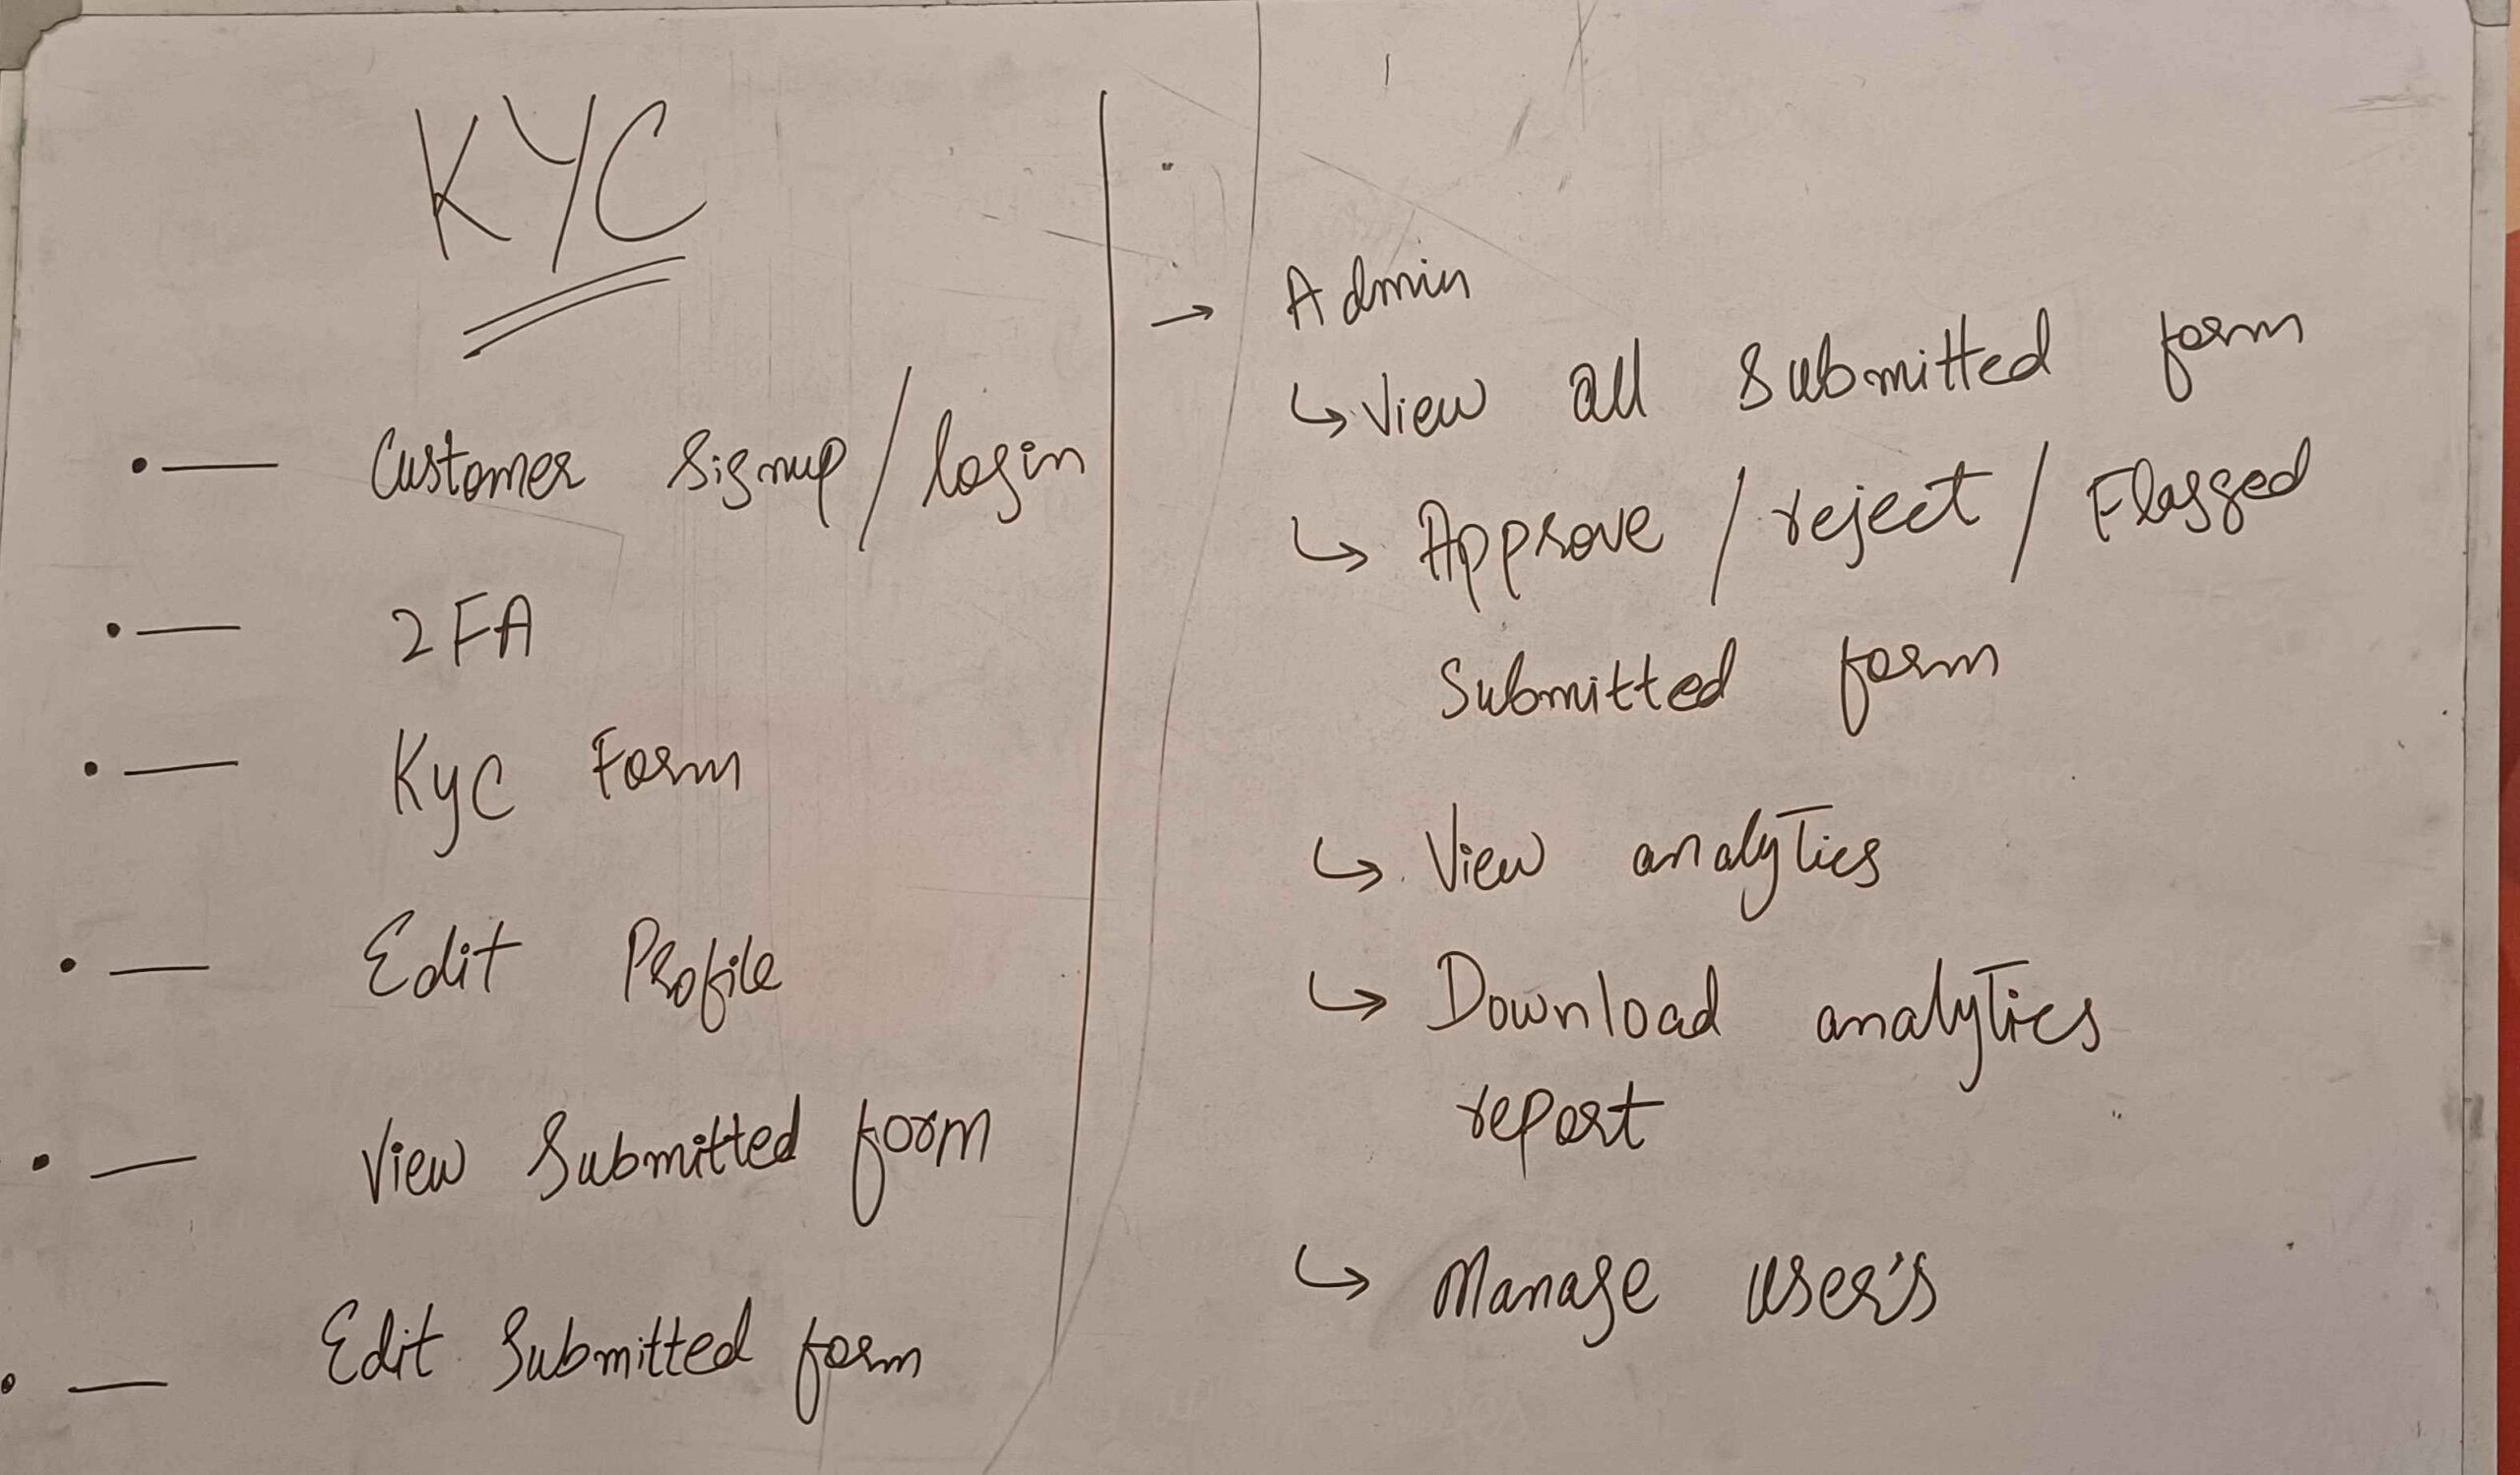 KYC
• — Customer Signup / login
• — 2FA
• — KyC Form
• — Edit Profile
• — View Submitted form
• — Edit Submitted form
→ Admin
↳ View all Submitted form
↳ Approve / reject / Flagged
Submitted form
↳ View analytics
↳ Download analytics
report
↳ Manage user's